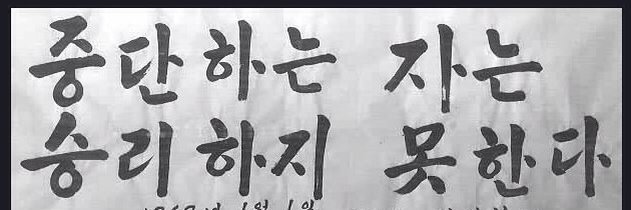 중단하는 자는
승리하지 못한다